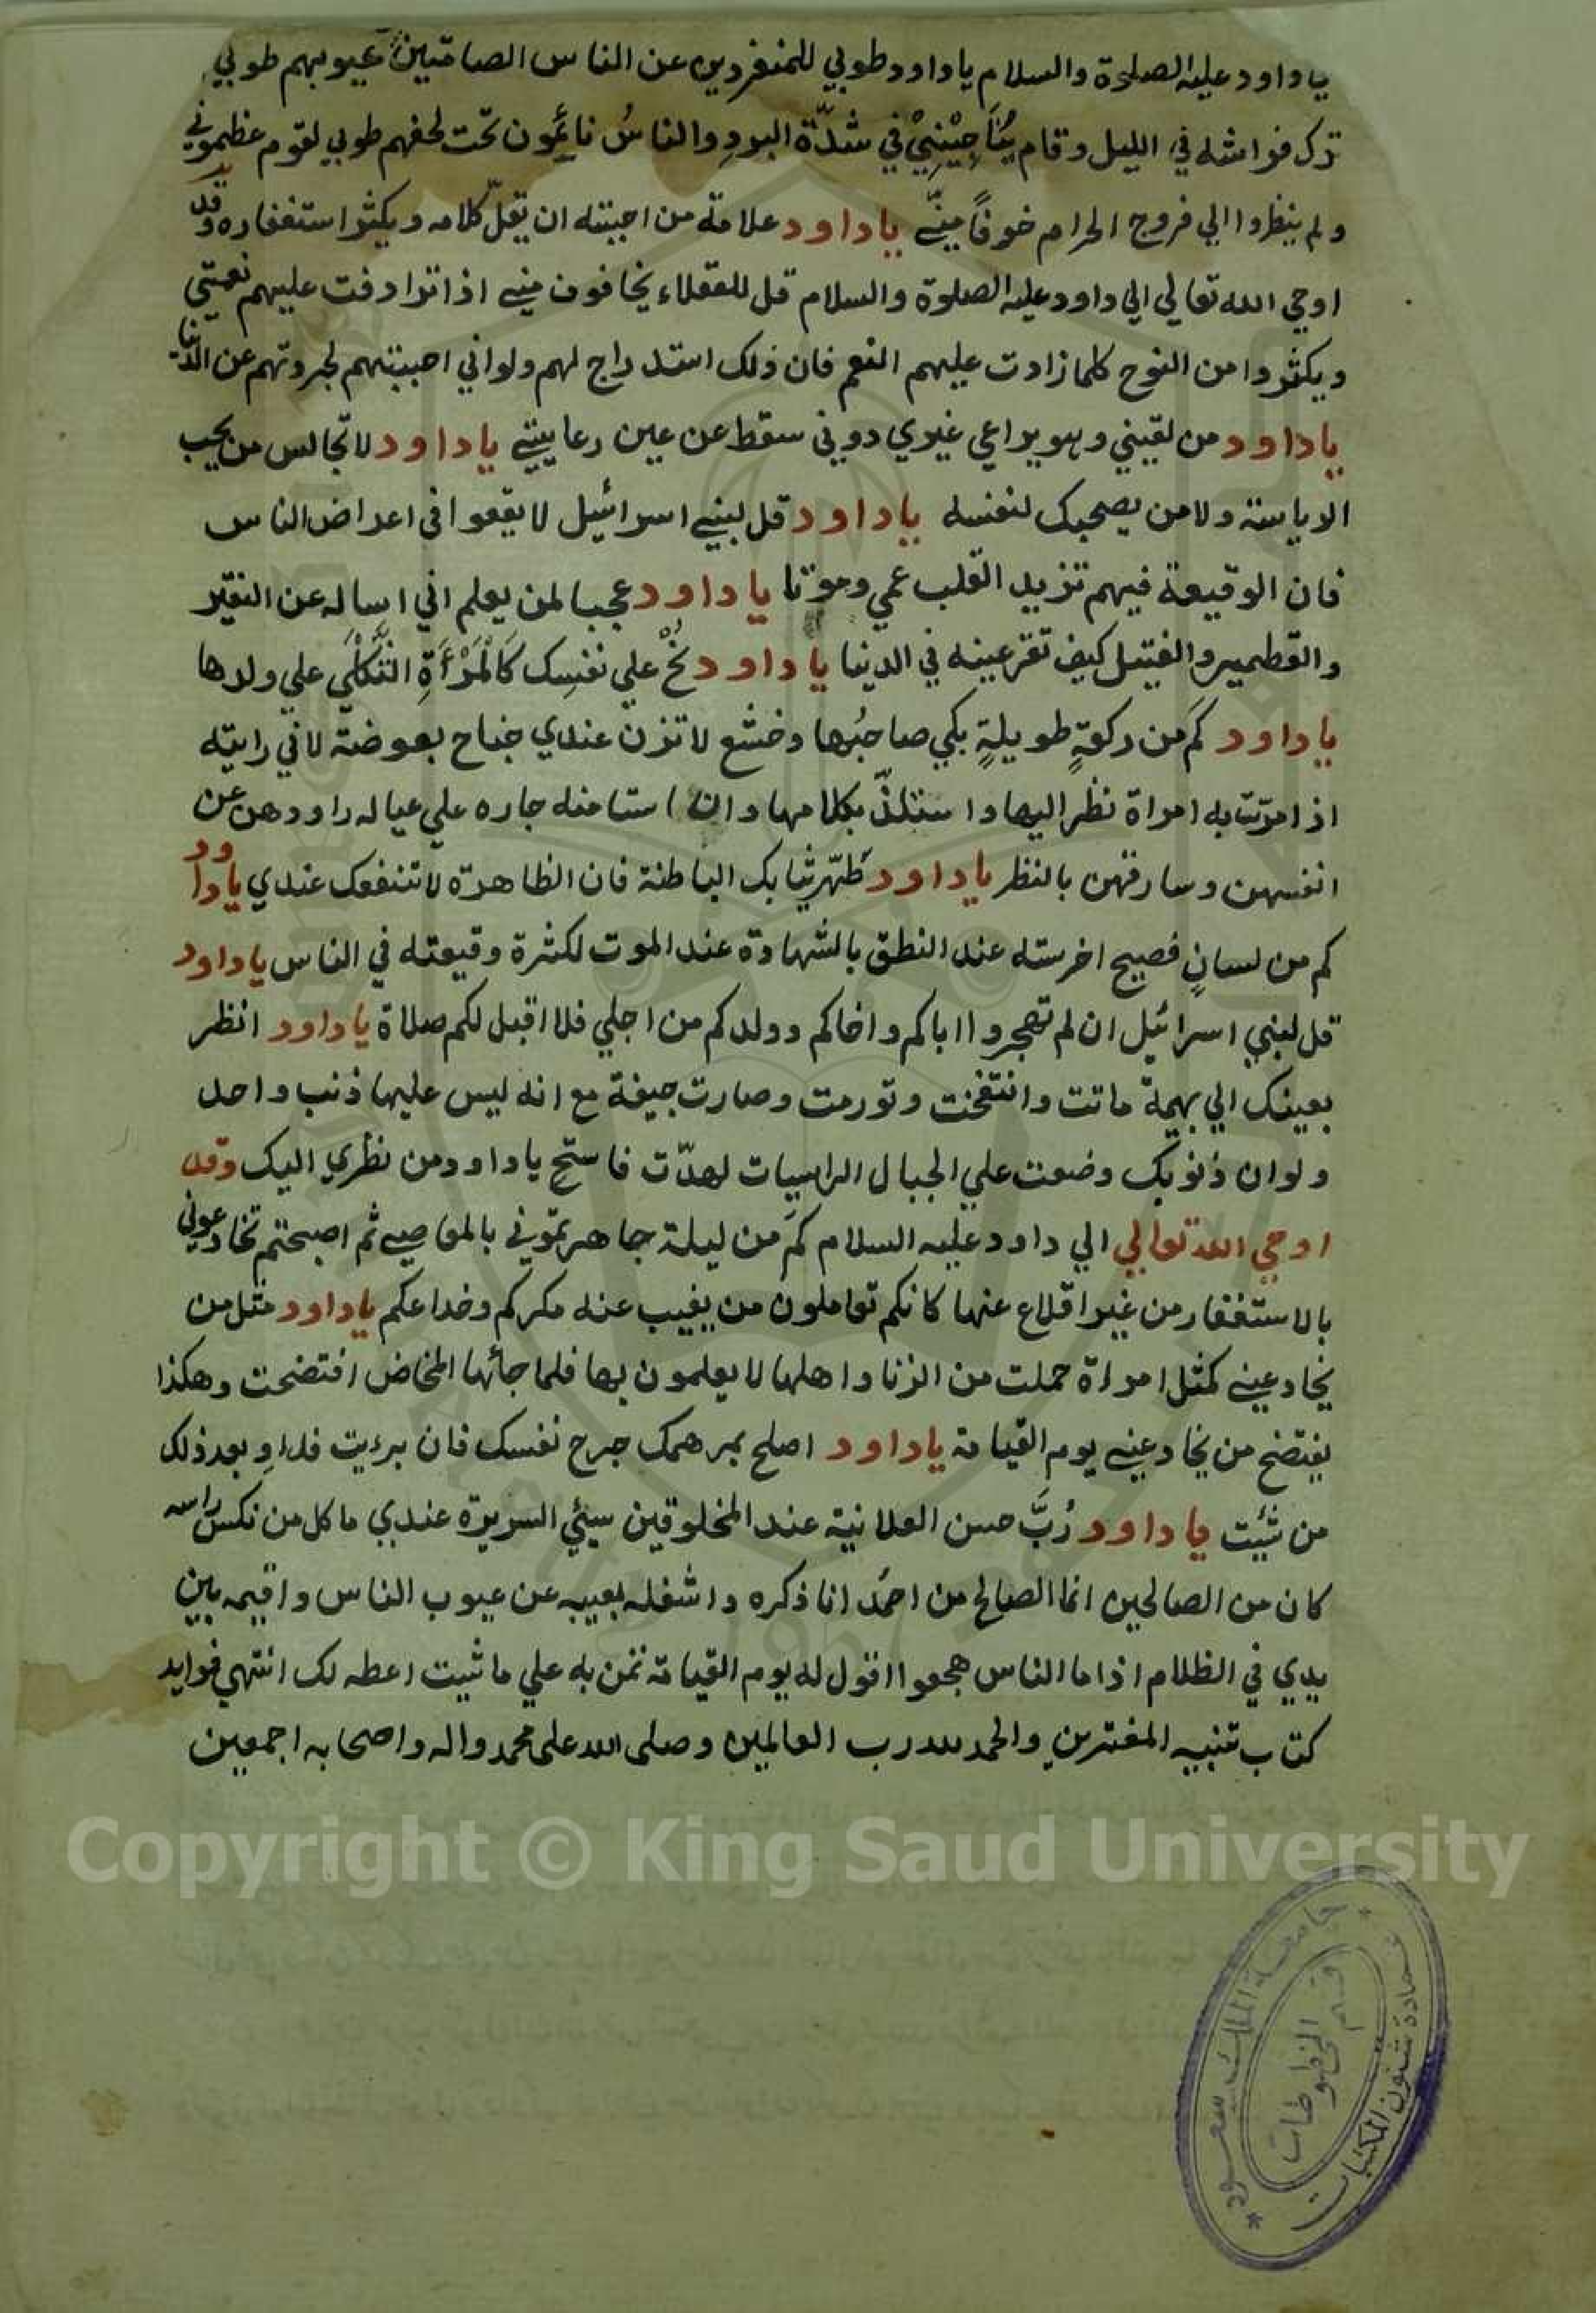 ياداود عليه الصلوة والسلام ياداود طوبي للمنفردين عن الناس الصامتين عيوبهم طوبي
ترك فراشه في الليل وقام يُنَاجِيْنِيْ في شدّة البردِ والناسُ نائمون تحت لحفهم طوبي لقوم عظموني
ولم ينظروا الي فروج الحرام خوفًا منّي ياداود علامة من احببته ان يقلّ كلامه ويكثر استغفاره وقد
اوحي الله تعالي الي داود عليه الصلوة والسلام قل للعقلاء يخافون مني اذا ترادفت عليهم نعمتي
ويكثروا من النوح كلما زادت عليهم النعم فان ذلك استدراج لهم ولو اني احببتهم لجردتهم عن الدنيا
ياداود من لقيني وهو يراعي غيري دوني سقط عن عين رعايتي ياداود لا تجالس من يحب
الرياسة ولا من يصحبك لنفسه ياداود قل لبني اسرائيل لا يقعوا في اعراض الناس
فان الوقيعة فيهم تزيد القلب عمي وموتا ياداود عجبا لمن يعلم اني اساله عن النقير
والقطمير والفتيل كيف تقر عينه في الدنيا ياداود نُحْ علي نفسِك كَالْمَرْأَةِ الثَّكْلَي علي ولدها
ياداود كَم من ركعةٍ طويلةٍ بكي صاحبُها وخشع لا تزن عندي جناح بعوضة لاني رايته
اذا مرّت به امراة نظر اليها واستلذّ بكلامها وان استامنه جاره علي عياله راودهن عن
انفسهن وسارقهن بالنظر ياداود طَهّر ثيابك الباطنة فان الظاهرة لا تنفعك عندي ياداود
كم من لسانٍ فصيح اخرسته عند النطق بالشهادة عند الموت لكثرة وقيعته في الناس ياداود
قل لبني اسرائيل ان لم تهجروا اباكم واخاكم وولدكم من اجلي فلا اقبل لكم صلاة ياداود انظر
بعينك الي بهيمة ماتت وانتفخت وتورمت وصارت جيفة مع انه ليس عليها ذنب واحد
ولو ان ذنوبك وضعت علي الجبال الراسيات لهدّت فاستحِ ياداود من نظري اليك وقد
اوحي الله تعالي الي داود عليه السلام كَم من ليلة جاهرتموني بالمعاصي ثم اصبحتم تخادعوني
بالاستغفار من غير اقلاع عنها كانكم تعاملون من يغيب عنه مكركم وخداعكم ياداود مثل من
يخادعني كمثل امراة حملت من الزنا واهلها لا يعلمون بها فلما جائها المخاض افتضحت وهكذا
يفتضح من يخادعني يوم القيامة ياداود اصلح بمرهمك جرح نفسك فان برءيت فداوِ بعد ذلك
من شئت ياداود رُبَّ حسن العلانية عند المخلوقين سيئي السريرة عندي ما كل من نكس راسه
كان من الصالحين انما الصالح من احمُد انا ذكره واشغله بعيبه عن عيوب الناس واقيمه بين
يدي في الظلام اذا ما الناس هجعوا اقول له يوم القيامة تمن به علي ما شيت اعطه لك انتهي فوايد
كتاب تنبيه المغترين والحمد لله رب العالمين وصلى الله على محمد واله واصحابه اجمعين
Copyright © King Saud University
جامعة الملك سعود
عمادة شئون المكتبات
قسم المخطوطات